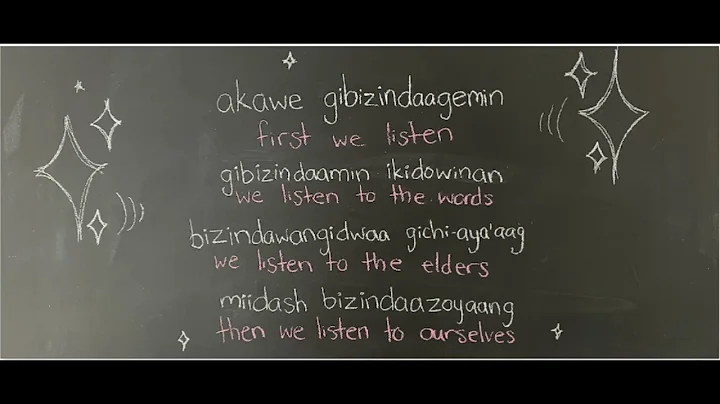 akawe gibizindaagemin
first we listen
gibizindaamin ikidowinan
we listen to the words
bizindawangidwaa gichi-aya'aag
we listen to the elders
miidash bizindaazoyaang
then we listen to ourselves